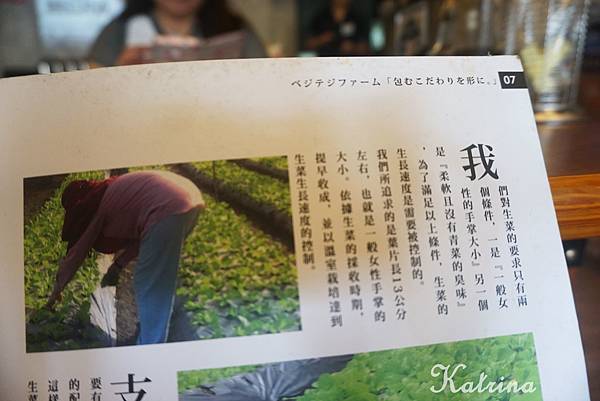 ベジテジファーム「包むこだわりを形に。」 07
我
們對生菜的要求只有兩
個條件，一是『一般女
性的手掌大小』另一個
是『柔軟且沒有青菜的臭味』
，為了滿足以上條件，生菜的
生長速度是需要被控制的。
我們所追求的是葉片長13公分
左右，也就是一般女性手掌的
大小。依據生菜的採收時期，
提早收成，並以溫室栽培達到
生菜生長速度的控制。
支
要有
的配
這樣
生菜
Katrina